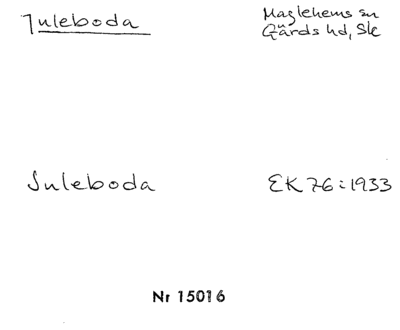 Juleboda
Maglehems sn
Gärds hd, Sk
Juleboda
EK 76:1933
Nr 15016